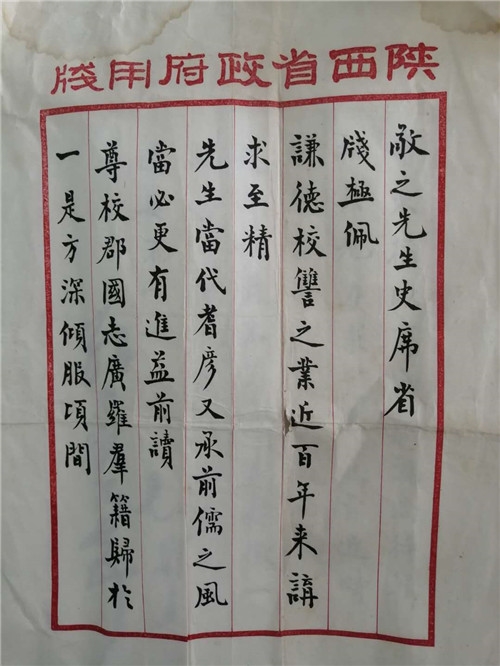 陝西省政府用牋
敬之先生史席省
牋極佩
謙德校讐之業近百年来講
求至精
先生當代耆彥又承前儒之風
當必更有進益前讀
尊校郡國志廣羅羣籍歸於
一是方深傾服頃間